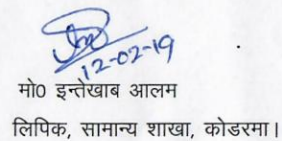 12-02-19
मो0 इन्तेखाब आलम
लिपिक, सामान्य शाखा, कोडरमा।